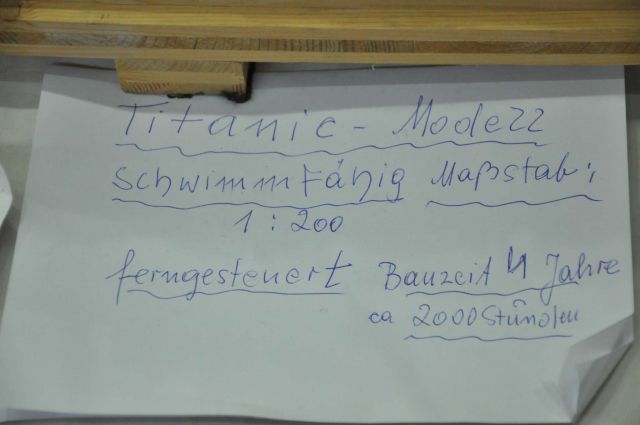 Titanic - Modell
Schwimmfähig Maßstab:
1 : 200
ferngesteuert Bauzeit 4 Jahre
ca 2000 Stunden